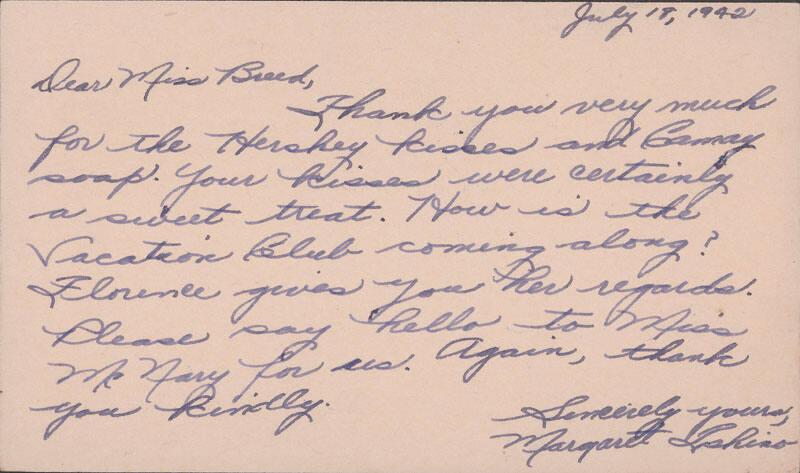 July 18, 1942
Dear Miss Breed,
Thank you very much
for the Hershey kisses and Camay
soap. Your kisses were certainly
a sweet treat. How is the
Vacation Club coming along?
Florence gives you her regards.
Please say hello to Miss
McNary for us. Again, thank
you kindly.
Sincerely yours,
Margaret Ishino